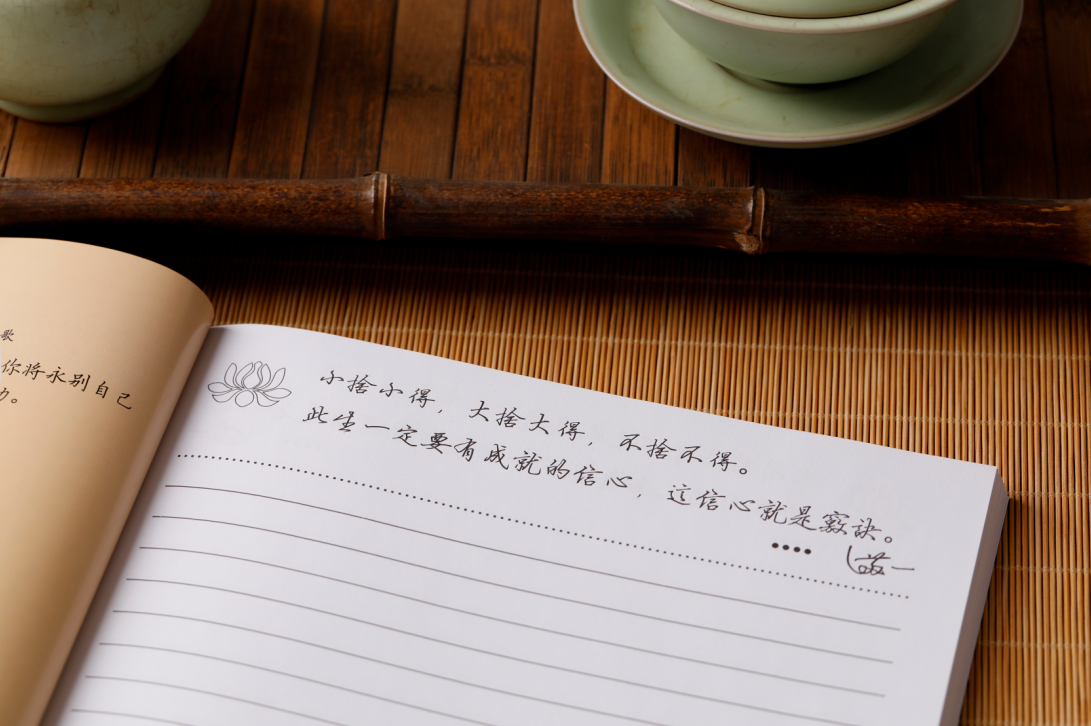 歌
你将永别自己
力。
小捨小得，大捨大得，不捨不得。
此生一定要有成就的信心，这信心就是竅訣。